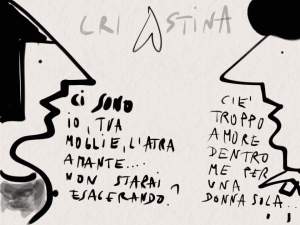 CRISTINA
CI SONO
IO, TUA
MOGLIE, L'ATRA
AMANTE....
NON STARAI
ESAGERANDO?
C'IE'
TROPPO
AMORE
DENTRO
ME PER
UNA
DONNA SOLA...